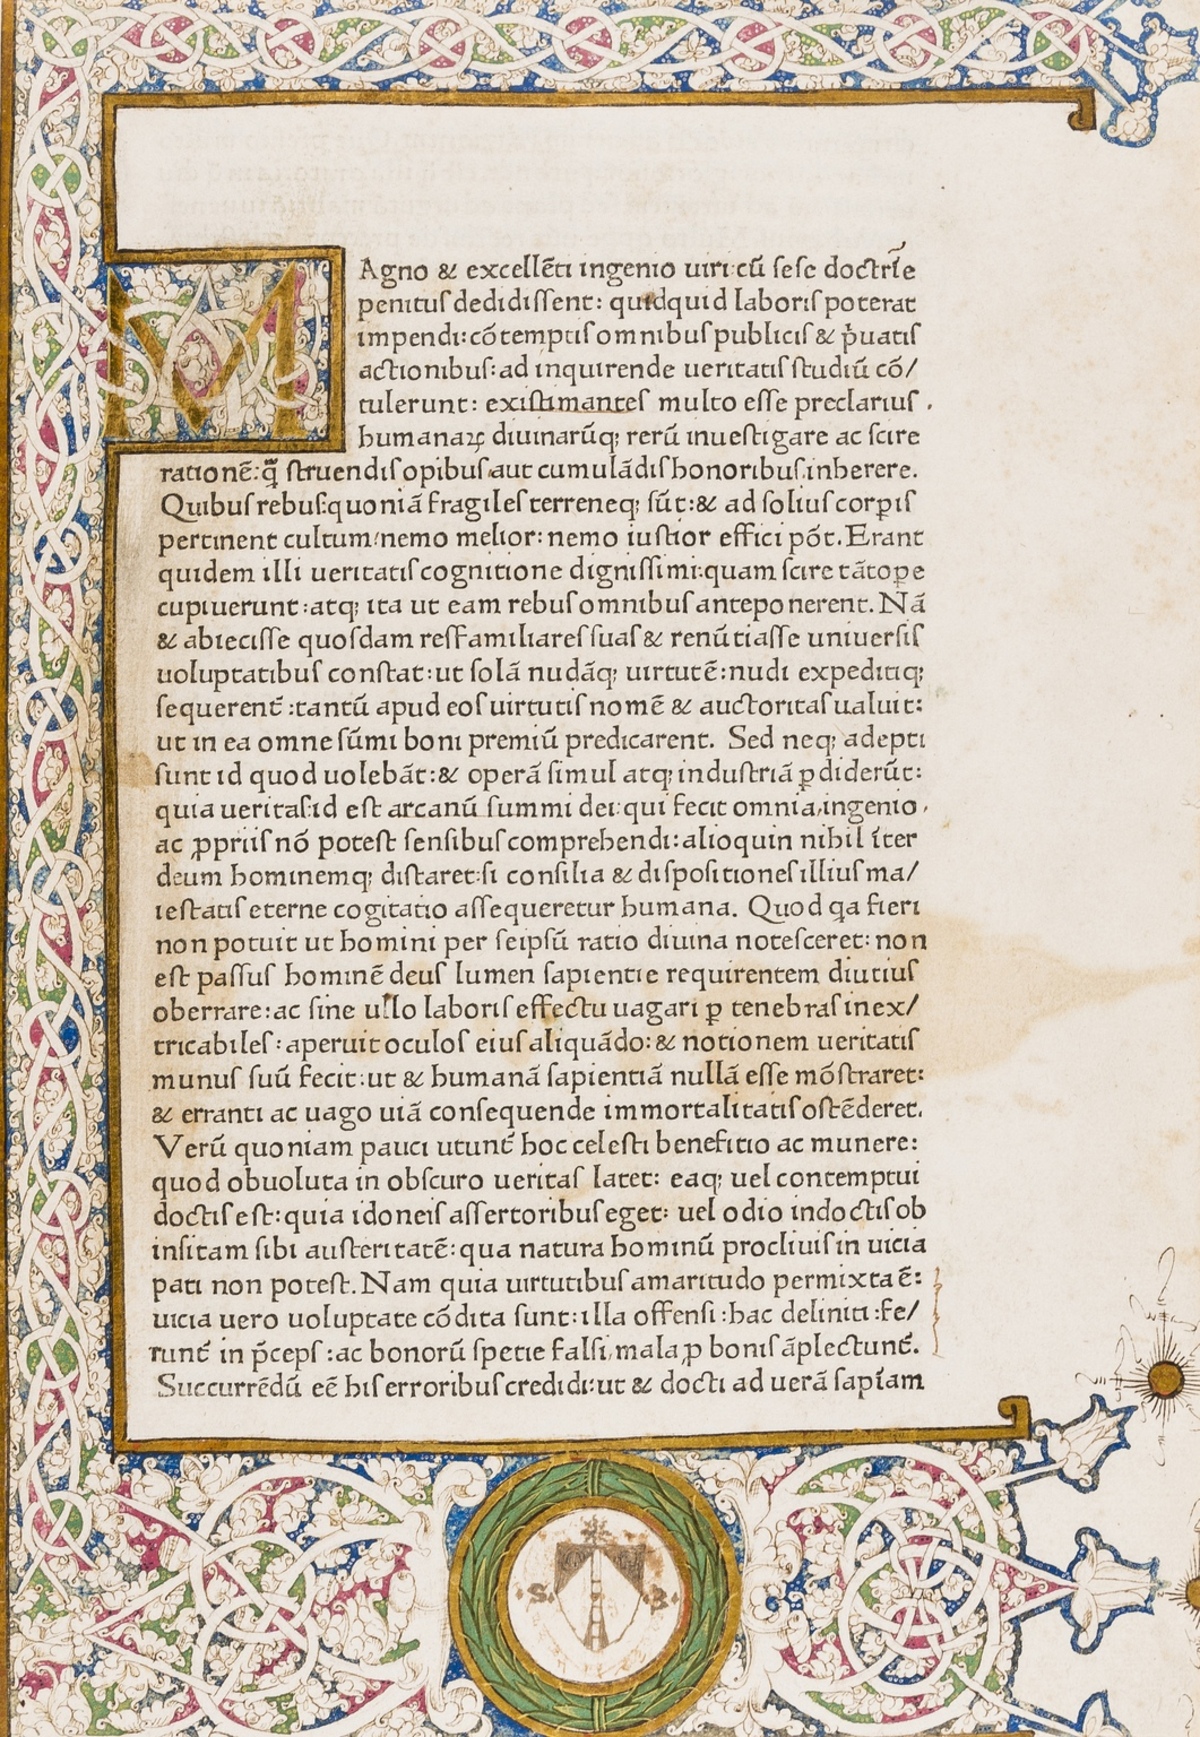 MAgno & excellẽti ingenio uiri cũ sese doctrĩe
penitus dedidissent: quidquid laboris poterat
impendi: cõtemptis omnibus publicis & p̃uatis
actionibus: ad inquirende ueritatis studiũ cõ/
tulerunt: existimantes multo esse preclarius.
humanaꝝ diuinarũq; rerũ inuestigare ac scire
rationẽ: q̃ struendis opibus aut cumulãdis honoribus inherere.
Quibus rebus: quoniã fragiles terreneq; sũt: & ad solius corꝑis
pertinent cultum: nemo melior: nemo iustior effici põt. Erant
quidem illi ueritatis cognitione dignissimi: quam scire tãtoꝑe
cupiuerunt: atq; ita ut eam rebus omnibus anteponerent. Nã
& abiecisse quosdam res familiares suas & renũtiasse uniuersis
uoluptatibus constat: ut solã nudãq; uirtutẽ: nudi expeditiq;
sequerent̃: tantũ apud eos uirtutis nomẽ & auctoritas ualuit:
ut in ea omne sũmi boni premiũ predicarent. Sed neq; adepti
sunt id quod uolebãt: & operã simul atq; industriã ꝑdiderũt:
quia ueritas: id est arcanũ summi dei: qui fecit omnia, ingenio.
ac ꝓpriis nõ potest sensibus comprehendi: alioquin nihil ĩter
deum hominemq; distaret: si consilia & dispositiones illius ma/
iestatis eterne cogitatio assequeretur humana. Quod qa fieri
non potuit ut homini per seipsũ ratio diuina notesceret: non
est passus hominẽ deus lumen sapientie requirentem diutius
oberrare: ac sine ullo laboris effectu uagari ꝑ tenebras inex/
tricabiles: aperuit oculos eius aliquãdo: & notionem ueritatis
munus suũ fecit: ut & humanã sapientiã nullã esse mõstraret:
& erranti ac uago uiã consequende immortalitatis ostẽderet.
Verũ quoniam pauci utunt̃ hoc celesti benefitio ac munere:
quod obuoluta in obscuro ueritas latet: eaq; uel contemptui
doctis est: quia idoneis assertoribus eget: uel odio indoctis ob
insitam sibi austeritatẽ: qua natura hominũ procliuis in uicia
pati non potest. Nam quia uirtutibus amaritudo permixta ẽ:
uicia uero uoluptate cõdita sunt: illa offensi: hac deliniti: fe/
runt̃ in p̃ceps: ac bonorũ spetie falsi, mala ꝓ bonis ãplectunt̃.
Succurrẽdũ eẽ his erroribus credidi: ut & docti ad uerã sapĩam
.S. B.